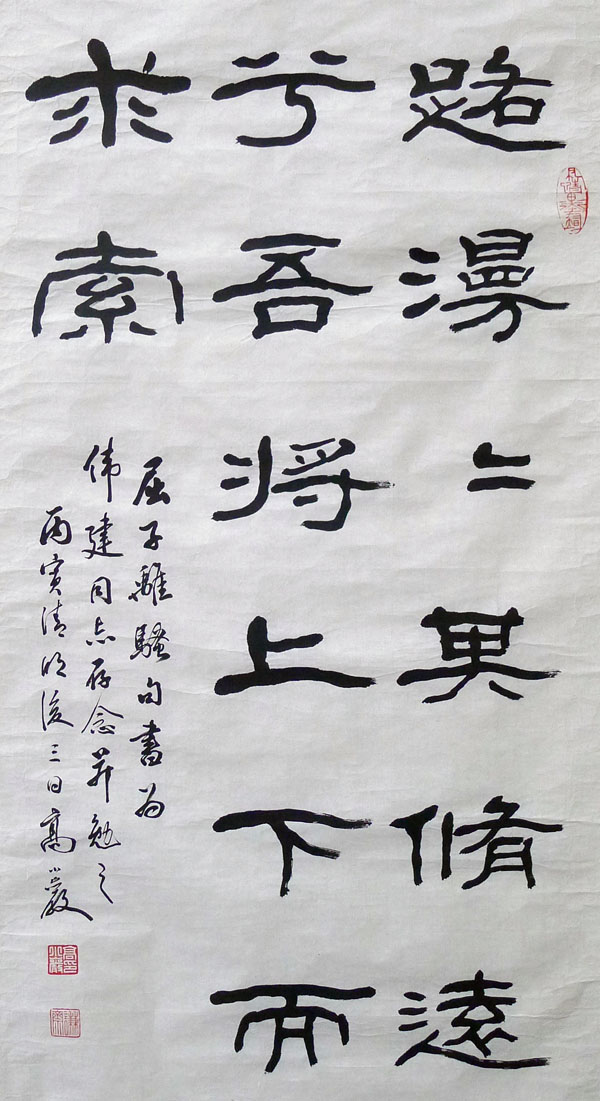 路漫〻其脩遠
兮吾將上下而
求索
屈子離騷句書为
伟建同志存念并勉之
丙寅清明後三日高小巖